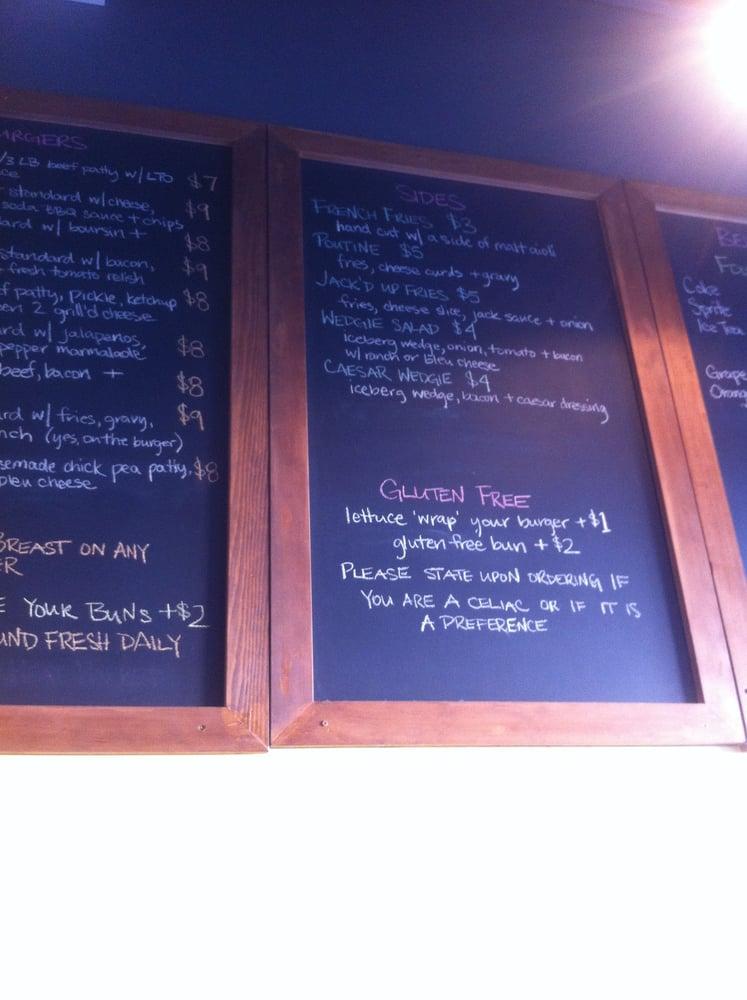 /3 LB beef patty w/ LTO $7
standard w/ cheese,
soda BBQ sauce + chips, $9
w/ boursin + $8
standard w/ bacon,
fresh tomato relish $9
patty, pickle, ketchup
2 grill'd cheese $8
w/ jalapenos,
pepper marmalade $8
beef, bacon + $8
w/ fries, gravy, $9
(yes, on the burger)
chick pea patty, $8
bleu cheese
BREAST ON ANY
YOUR BUNS +$2
FRESH DAILY
SIDES
FRENCH FRIES $3
hand cut w/ a side of malt aioli
POUTINE $5
fries, cheese curds + gravy
JACK'D UP FRIES $5
fries, cheese slice, jack sauce + onion
WEDGIE SALAD $4
iceberg wedge, onion, tomato + bacon
w/ ranch or bleu cheese
CAESAR WEDGIE $4
iceberg wedge, bacon + caesar dressing
GLUTEN FREE
lettuce 'wrap' your burger +$1
gluten-free bun + $2
PLEASE STATE UPON ORDERING IF
YOU ARE A CELIAC OR IF IT IS
A PREFERENCE
BE
Coke
Sprite
Ice Tea
Grape